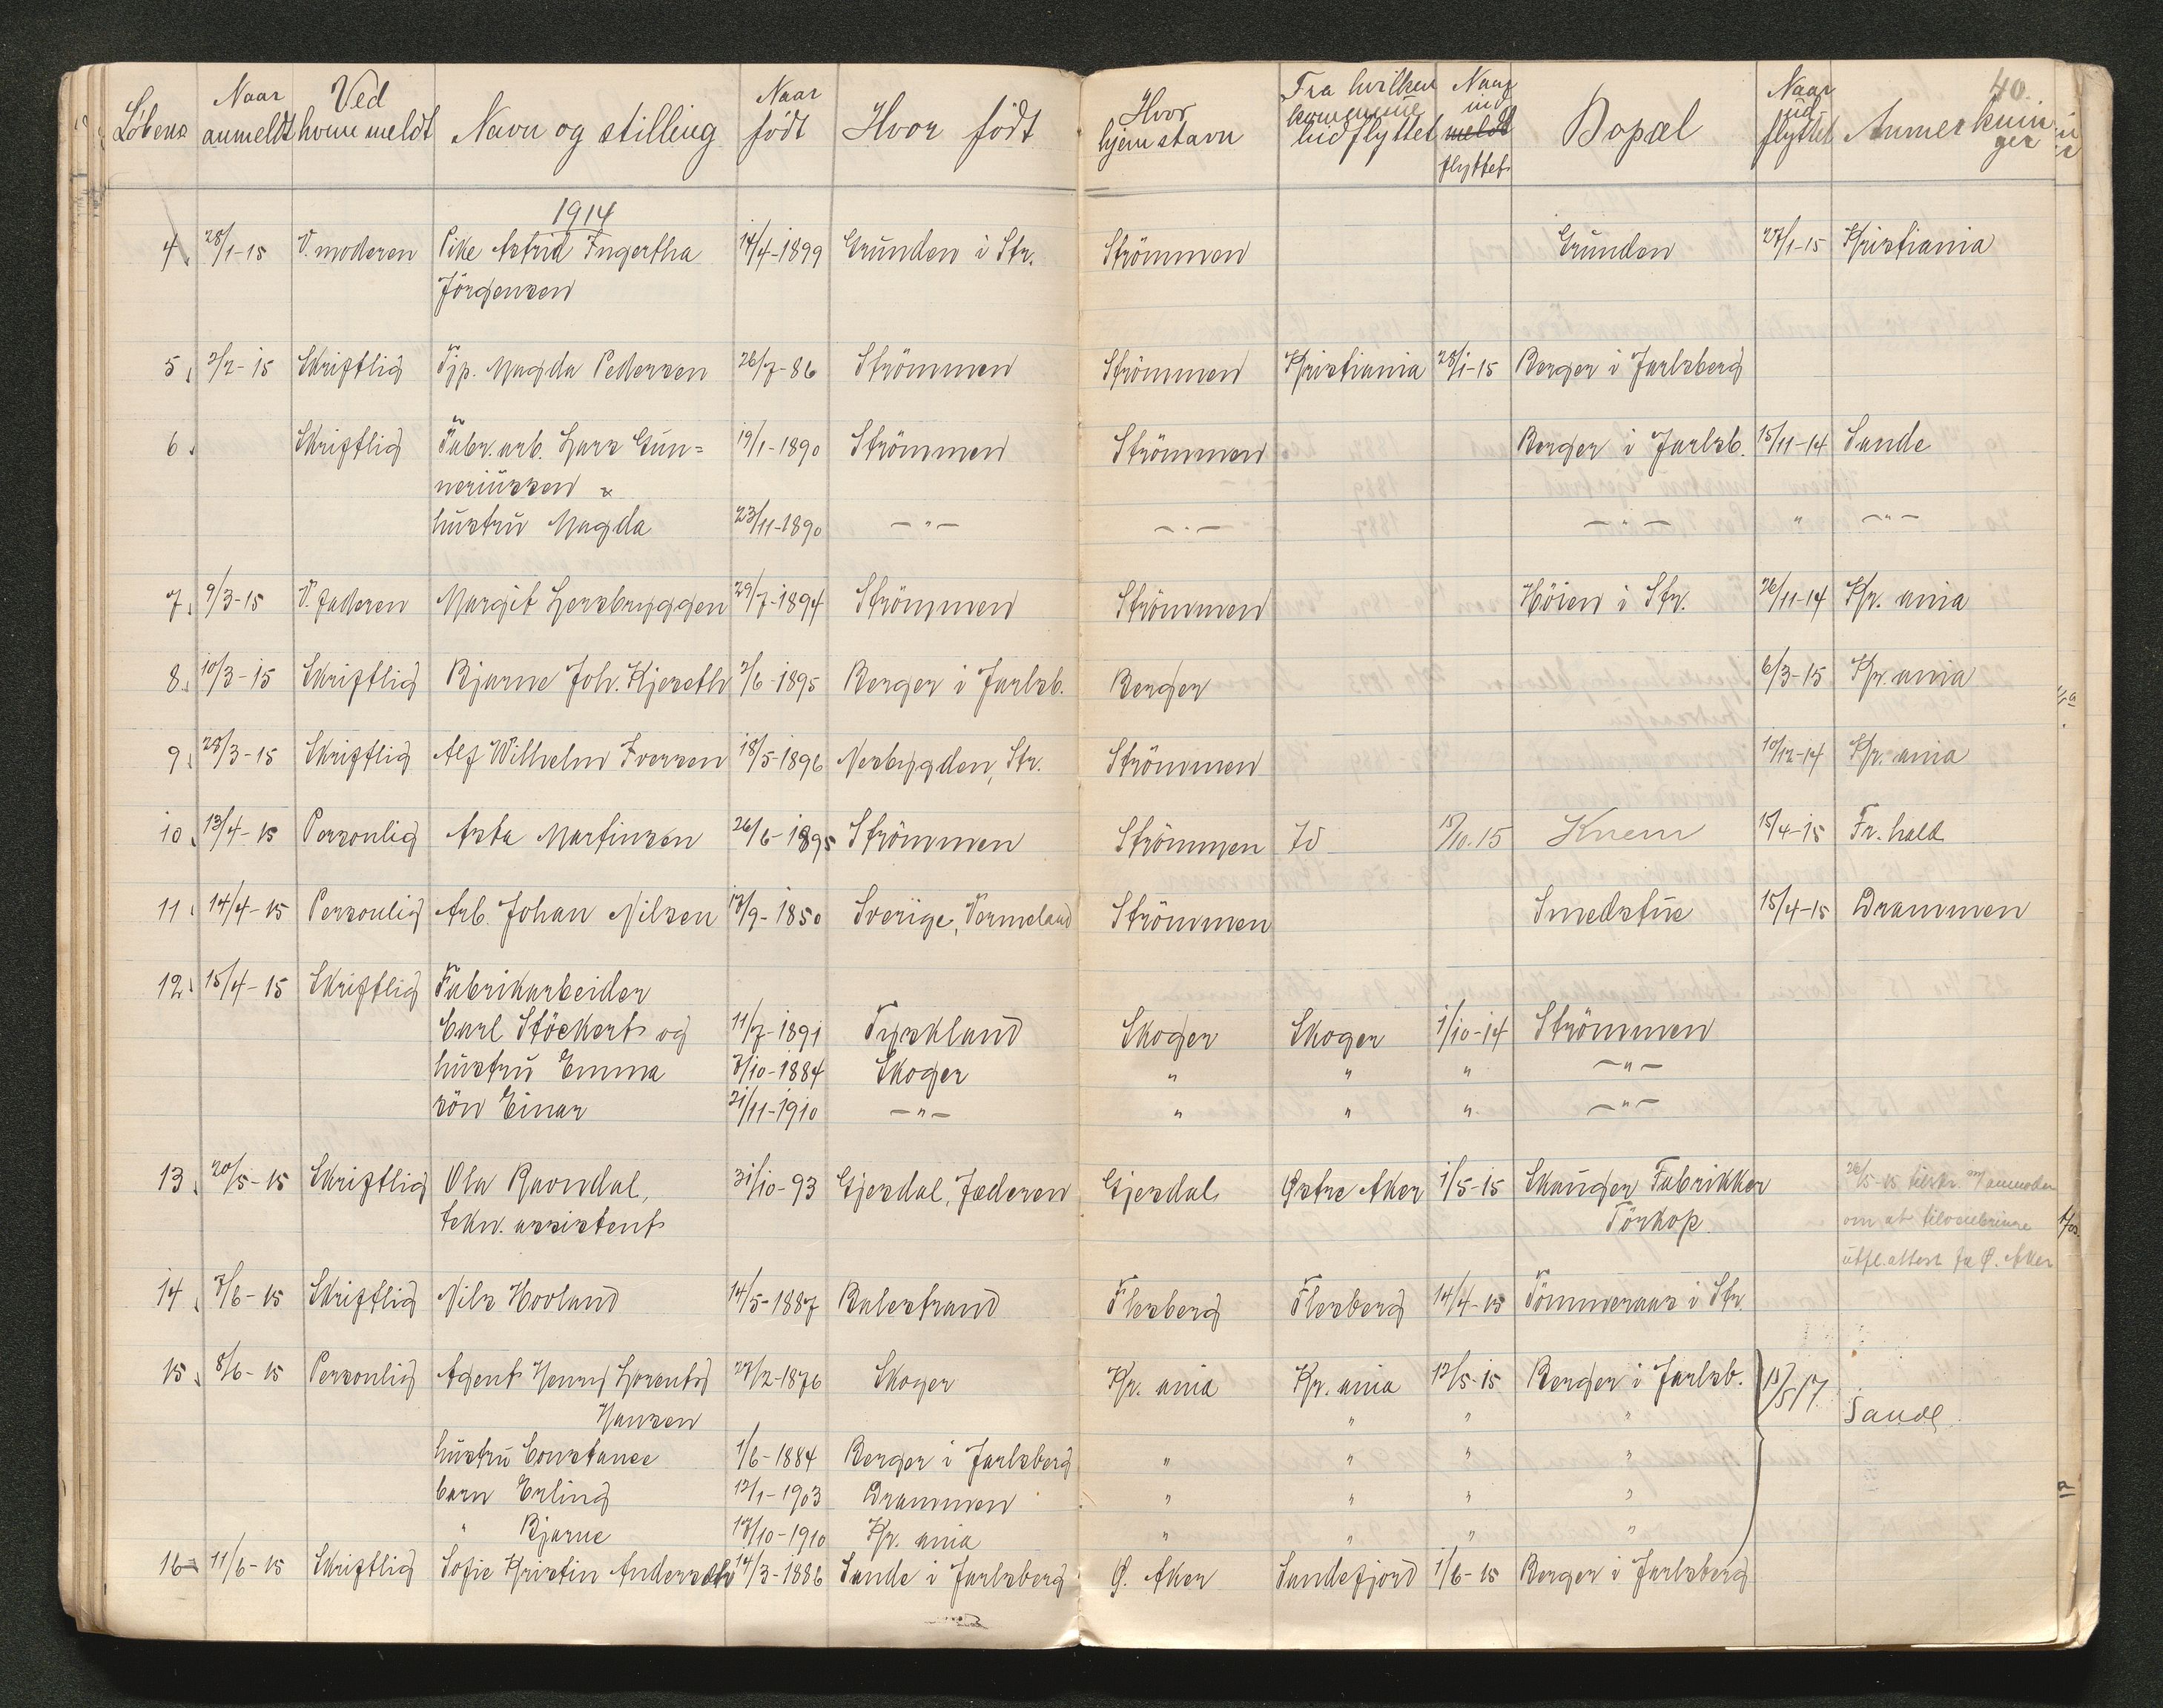 40.
Löbeno Naar anmeldt Ved hvem meldt Navn og stilling Naar født Hvor født Hvor hjemstavn Fra hvilken kommune indflyttet Naar ind meldt flyttet Bopæl Naar ud flyttet Anmerkninger
1914
4 28/1-15 V. moderen Pike Astrid Ingertha 14/4-1899 Grunden i Str. Strömmen Grunden 27/1-15 Kristiania
Jörgensen
5. 2/2-15 Skriftlig Tjp. Magda Pedersen 26/7-86 Strömmen Strömmen Kristiania 28/1-15 Berger i Jarlsberg
6. Skriftlig Fabr. arb. Lars Gun= 19/1-1890 Strömmen Strömmen Berger i Jarlsb. 15/11-14 Sande
neriussen &
hustru Magda 23/11-1890 -"- -"- -"- " -"-
7. 9/3-15 V. faderen Margit Lersbryggen 29/7-1894 Strömmen Strömmen Höien i Str. 26/11-14 Kr. ania
8. 10/3-15 Skriftlig Bjarne Joh. Kjeseth 2/6-1895 Berger i Jarlsb. Berger 6/3-15 Kr. ania
9. 28/3-15 Skriftlig Alf Wilhelm Iversen 18/5-1896 Nesbygden, Str. Strömmen 10/12-14 Kr. ania
10. 13/4-15 Personlig Asta Martinsen 26/6-1895 Strömmen Strömmen 15/10.15 Knem 15/4-15 Fr. hald
11. 14/4-15 Personlig Arb. Johan Nilsen 17/9-1850 Sverige, Vermeland Strömmen Smedstue 15/4-15 Drammen
12. 15/4-15 Skriftlig Fabrikarbeider
Carl Stöckert og 11/7-1891 Tyskland Skoger Skoger 1/10-14 Strömmen
hustru Emma 7/10-1884 Skoger " " " -"-
sön Einar 21/11-1910 -"- " " " -"-
13. 20/5-15 Skriftlig Ola Ravndal, 31/10-93 Gjesdal, Jæderen Gjesdal Østre Aker 1/5-15 Skauger Fabrikker 26/5-15 tilskr. m/ anmoden
tekn. assistent Törkop. om at tilveiebringe
utfl. attest fra Ø. Aker
14. 7/6-15 Skriftlig Nils Hovland 14/5-1887 Balestrand Flesberg Flesberg 14/4-15 Tömmeraas i Str.
15. 8/6-15 Personlig Agent Henry Lorentz 27/2-1876 Skoger Kr. ania Kr. ania 12/5-15 Berger i Jarlsb. 15/5 17.
Hansen " " " Sande.
hustru Constance 1/6-1884 Berger i Jarlsberg " " " "
barn Erling 12/1-1903 Drammen " " " "
" Bjarne 17/10-1910 Kr. ania " " " "
16 11/6-15 Skriftlig Sofie Kristin Andersen 14/3-1886 Sande i Jarlsberg Ø. Aker Sandefjord 1/6-15 Berger i Jarlsberg